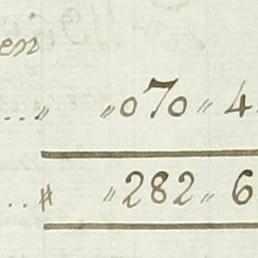 en
....„ „070„ 4
..# „282„ 6